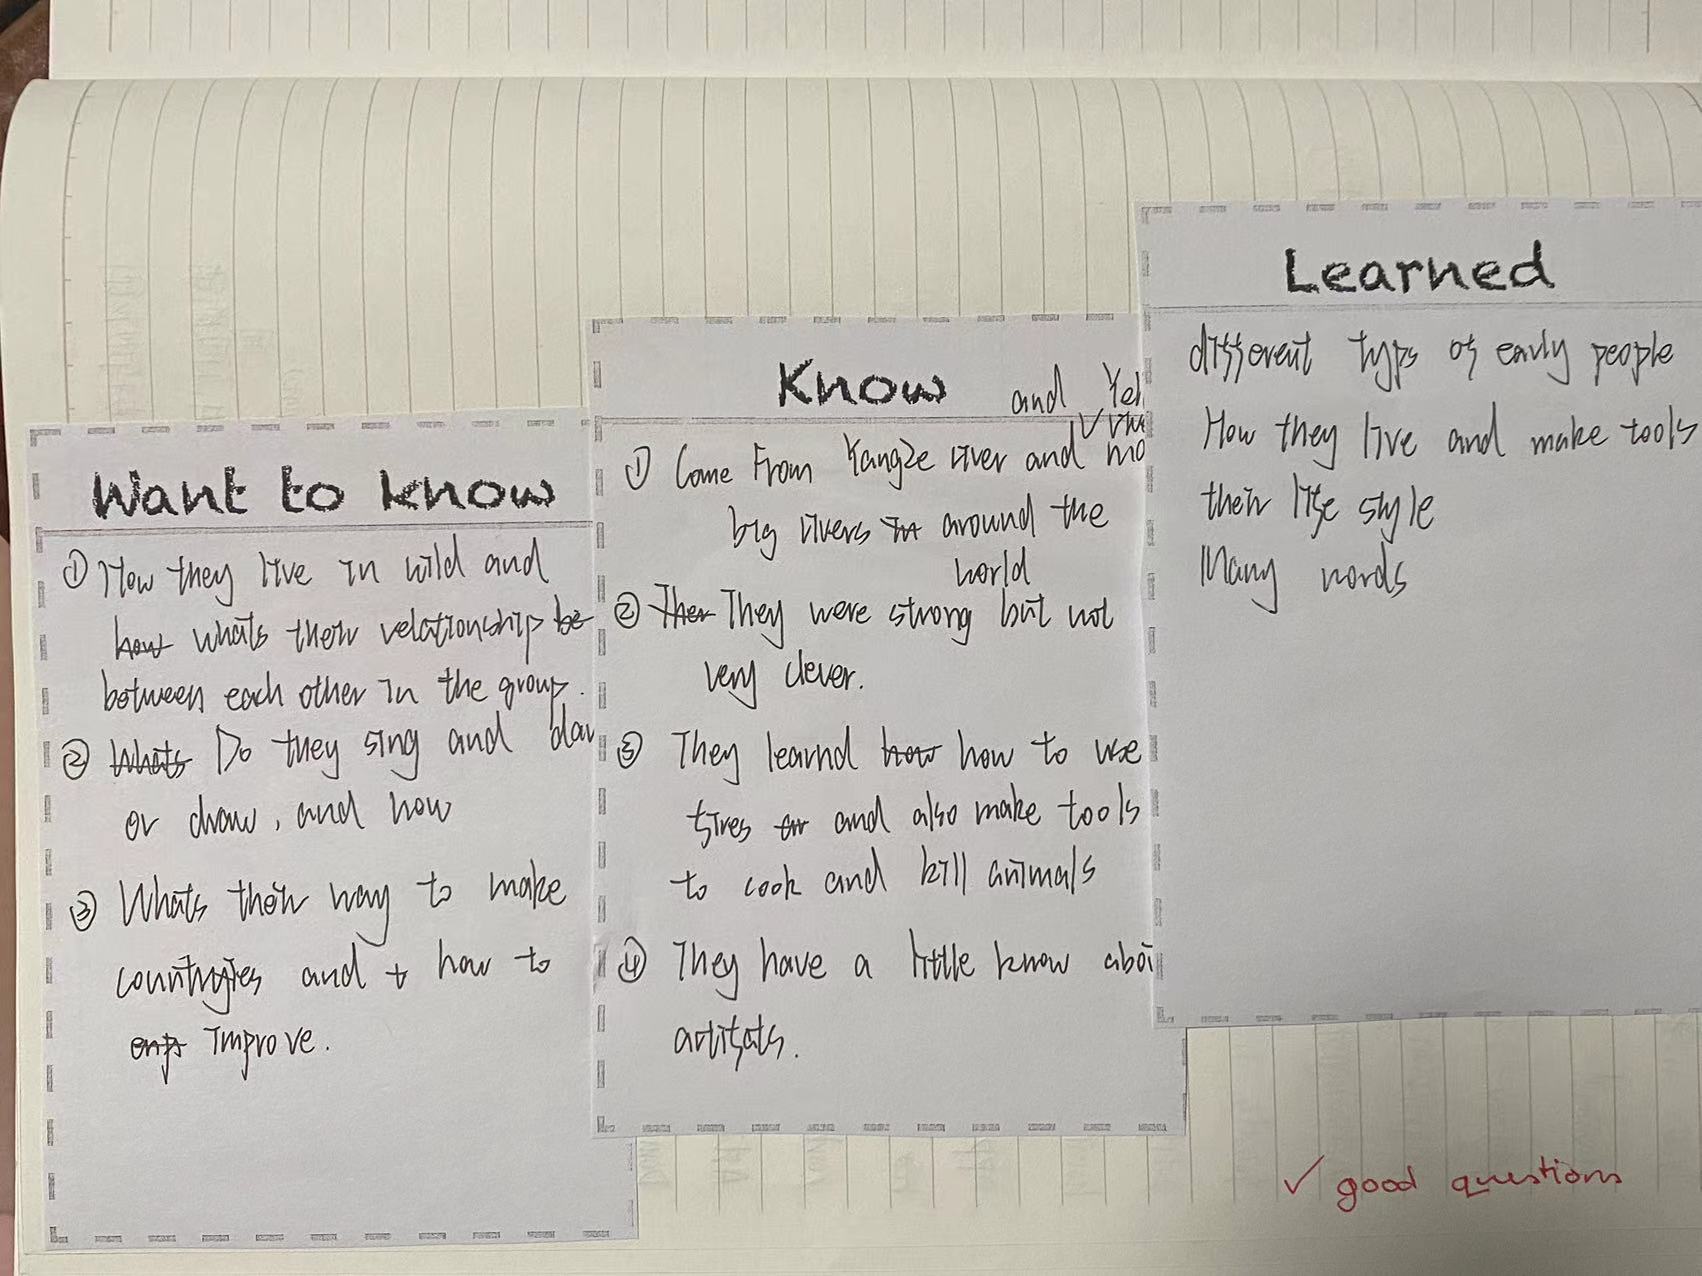 Want to know
① How they live in wild and
how whats their relationship be
between each other in the group.
② Whats Do they sing and
or draw, and how
③ Whats their way to make
countries and + how to
improve.
Know
and Yel
① Come From Yangze river and mo
big rivers in around the
world
② Ther They were strong but not
very clever.
③ They learnd how how to use
fires or and also make tools
to cook and kill animals
④ They have a little know abou
artifats.
Learned
different typs of early people
How they live and make tools
their life style
Many words
✓ good questions